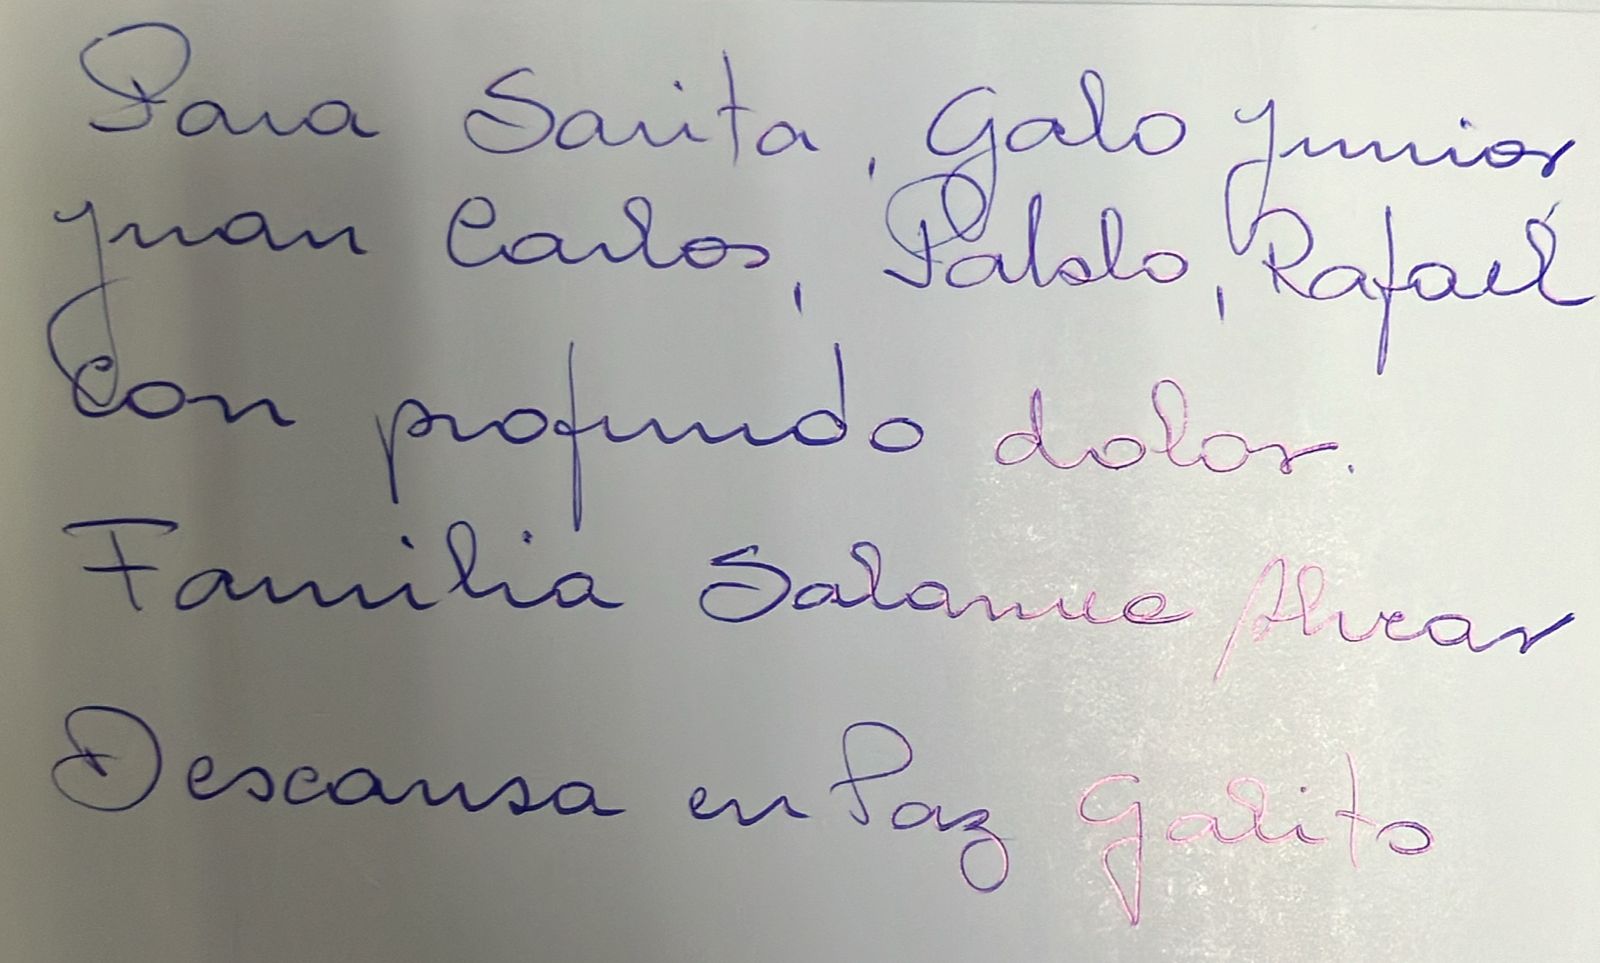 Para Sarita, Galo Junior
Juan Carlos, Pablo, Rafael
con profundo dolor.
Familia Salamea Alvear
Descansa en Paz Galito